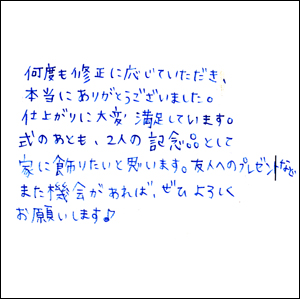 何度も修正に応じていただき、
本当にありがとうございました。
仕上がりに大変満足しています。
式のあとも、2人の記念品として
家に飾りたいと思います。友人へのプレゼントなど
また機会があれば、ぜひよろしく
お願いします♪